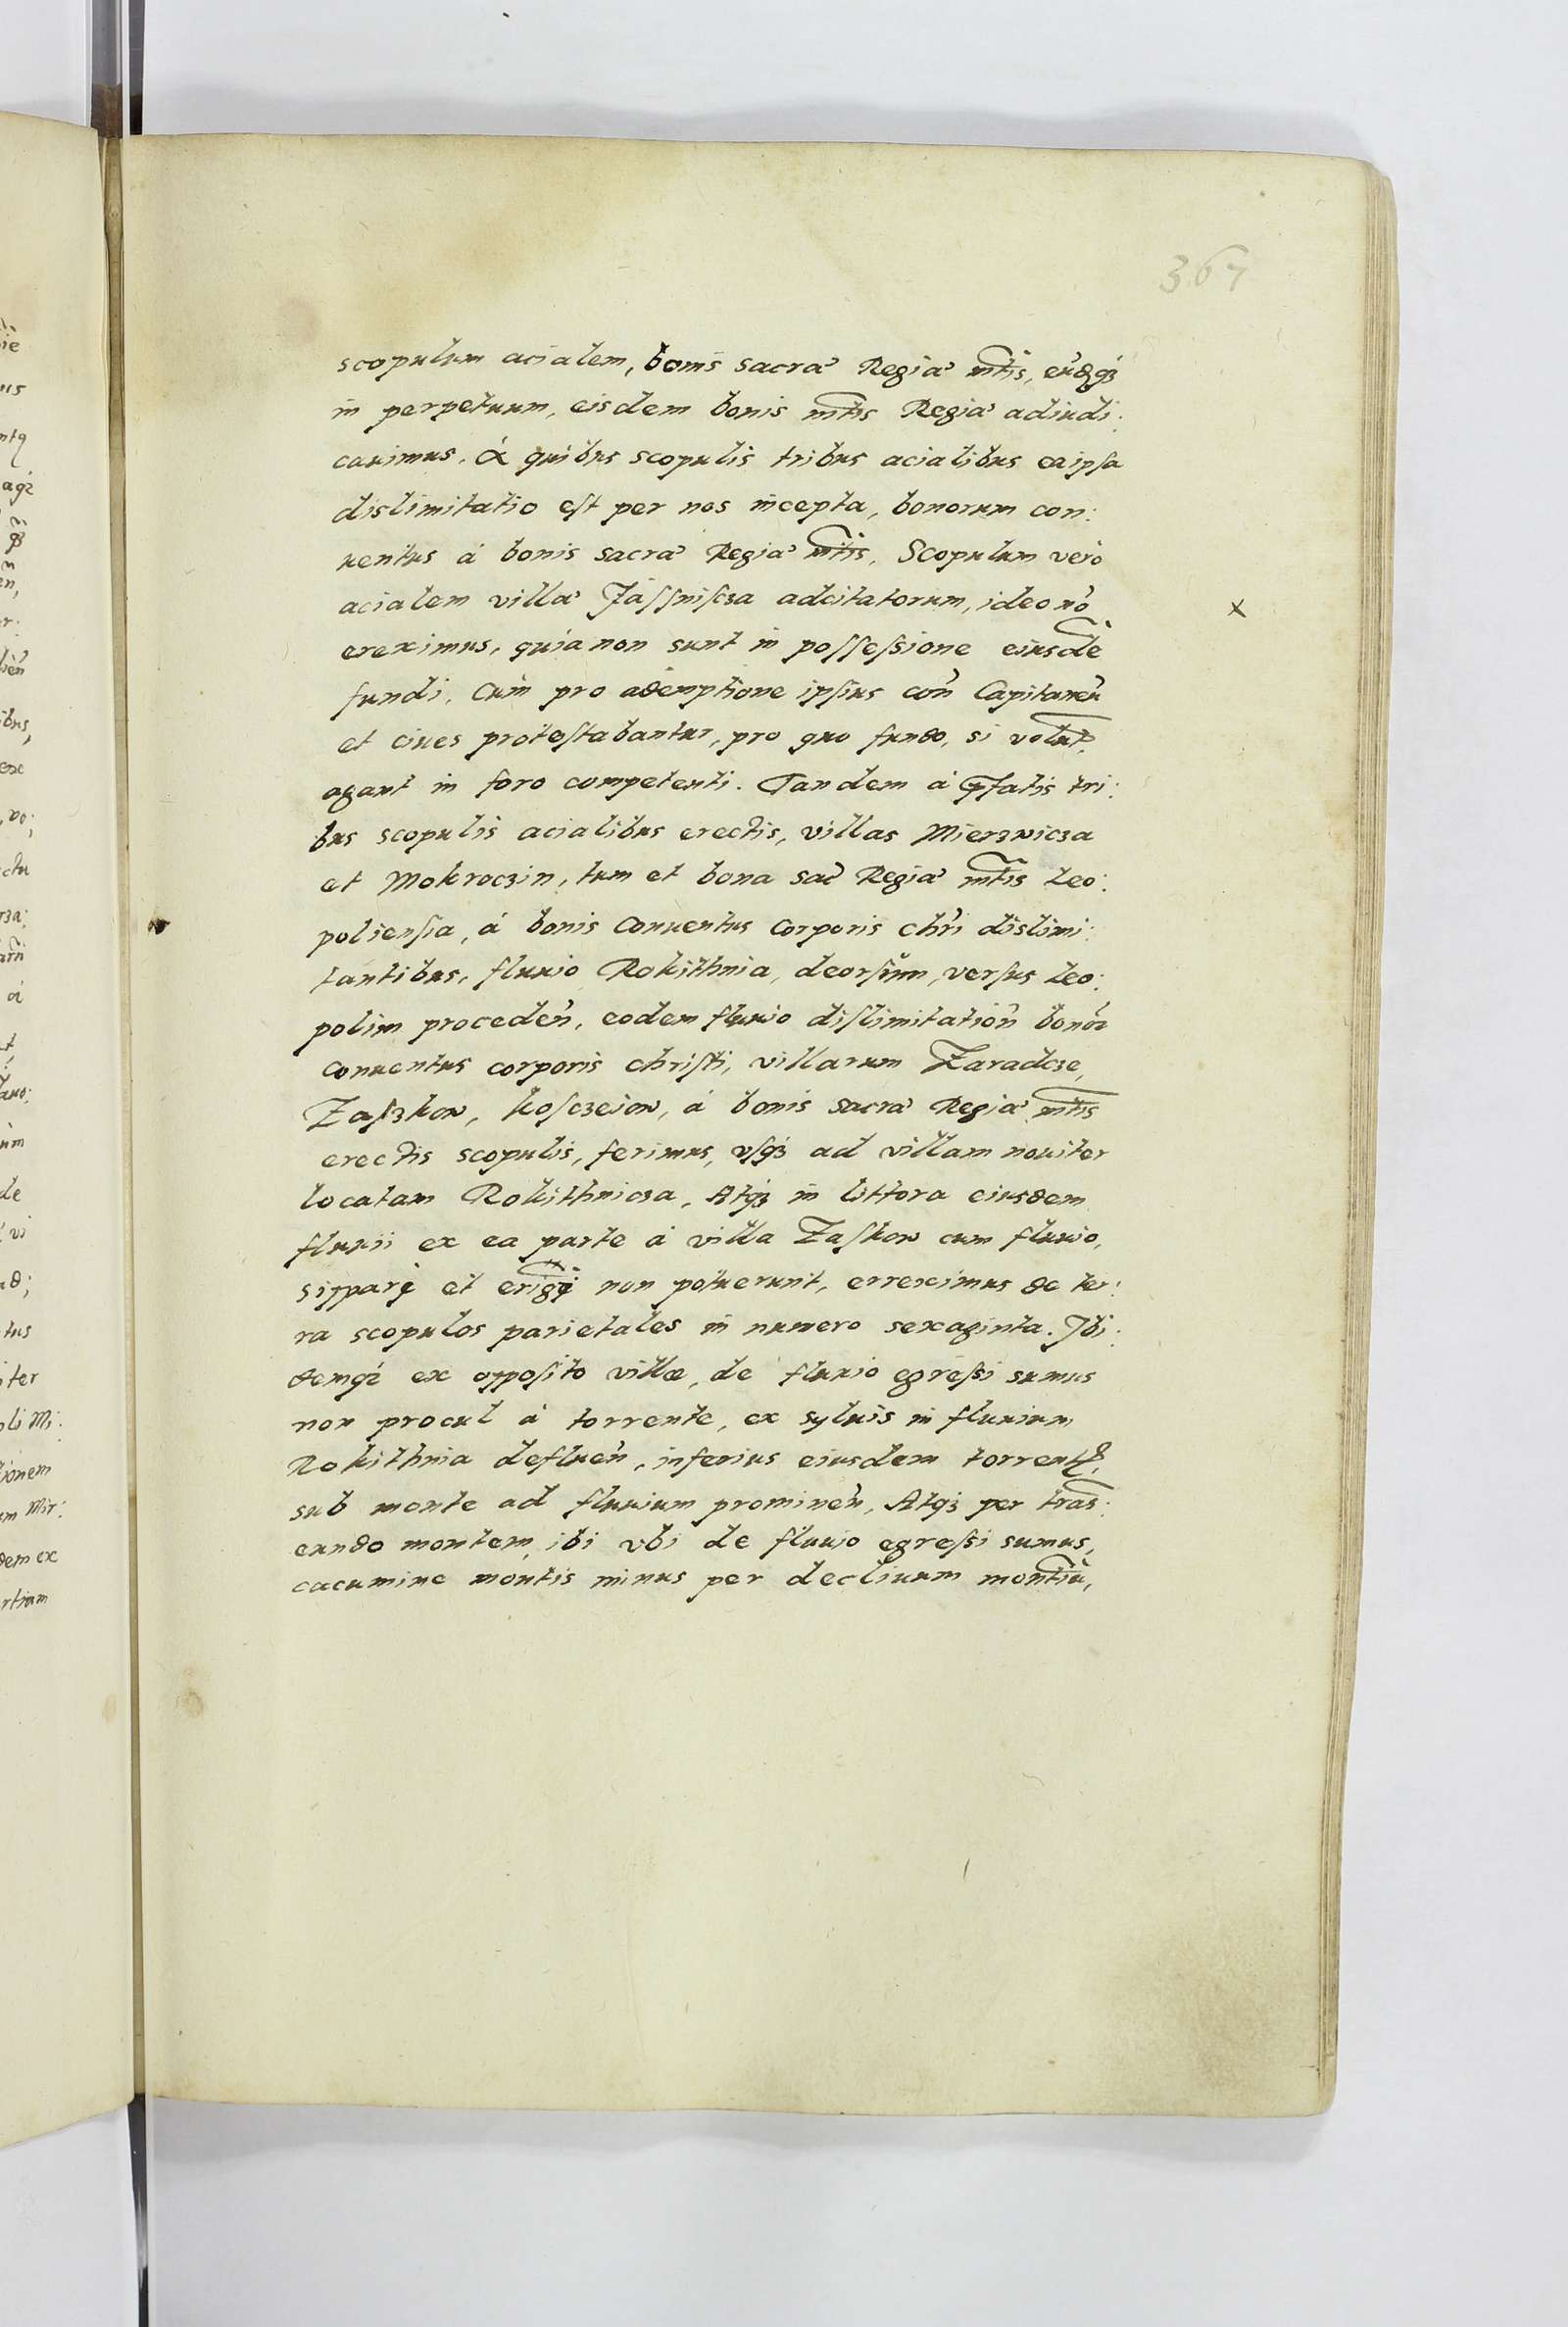 367
scopulum acialem, bonis sacræ Regiæ mtis, eundqz
in perpetuum, eisdem bonis mtis Regiæ adiudi:
cauimus. A quibus scopulis tribus acialibus ea ipsa
dislimitatio est per nos incepta, bonorum con:
uentus à bonis sacræ Regiæ mtis. Scopulum vero
acialem villæ Jassniscza adcitatorum, ideo nō
ereximus, quia non sunt in possessione eiusdē
fundi. Cum pro ademptione ipsius coñ Capitaneū
et ciues protestabantur, pro quo fundo, si volut,
agant in foro competenti. Tandem à pfatis tri:
bus scopulis acialibus erectis, villas Mierzwicza
et Mokroczin, tum et bona sac Regiæ mtis Leo:
poliensia, à bonis Conuentus Corporis chri dislimi:
tantibus, fluuio Rokithnia, deorsum, versus Leo:
polim proceden̄, eodem fluuio dislimitation̄ bonor
conuentus corporis christi, villarum Zaradcze,
Zaszkow, Kosczeiow, à bonis sacræ Regiæ mtis
erectis scopulis, ferimus, vsqz ad villam nouiter
locatam Rokithnicza, Atqz in littora eiusdem
fluuii ex ea parte à villa Zaskow cum fluuio,
sippari et erigi non potuerunt, erreximus de ter:
ra scopulos parietales in numero sexaginta. Ibi:
demqz ex opposito villæ, de fluuio egressi sumus
non procul à torrente, ex syluis in fluuium
Rokithnia defluen̄, inferius eiusdem torrentis,
sub monte ad fluuium prominen̄, Atqz per tras:
eundo montem, ibi vbi de fluuio egressi sumus,
cacumine montis minus per decliuum montiū,
x